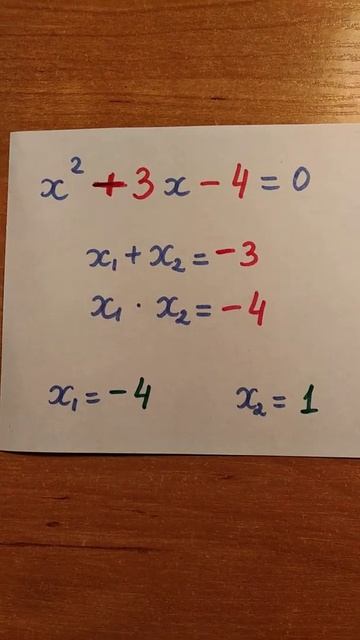 x² + 3x - 4 = 0
x₁ + x₂ = -3
x₁ · x₂ = -4
x₁ = -4 x₂ = 1